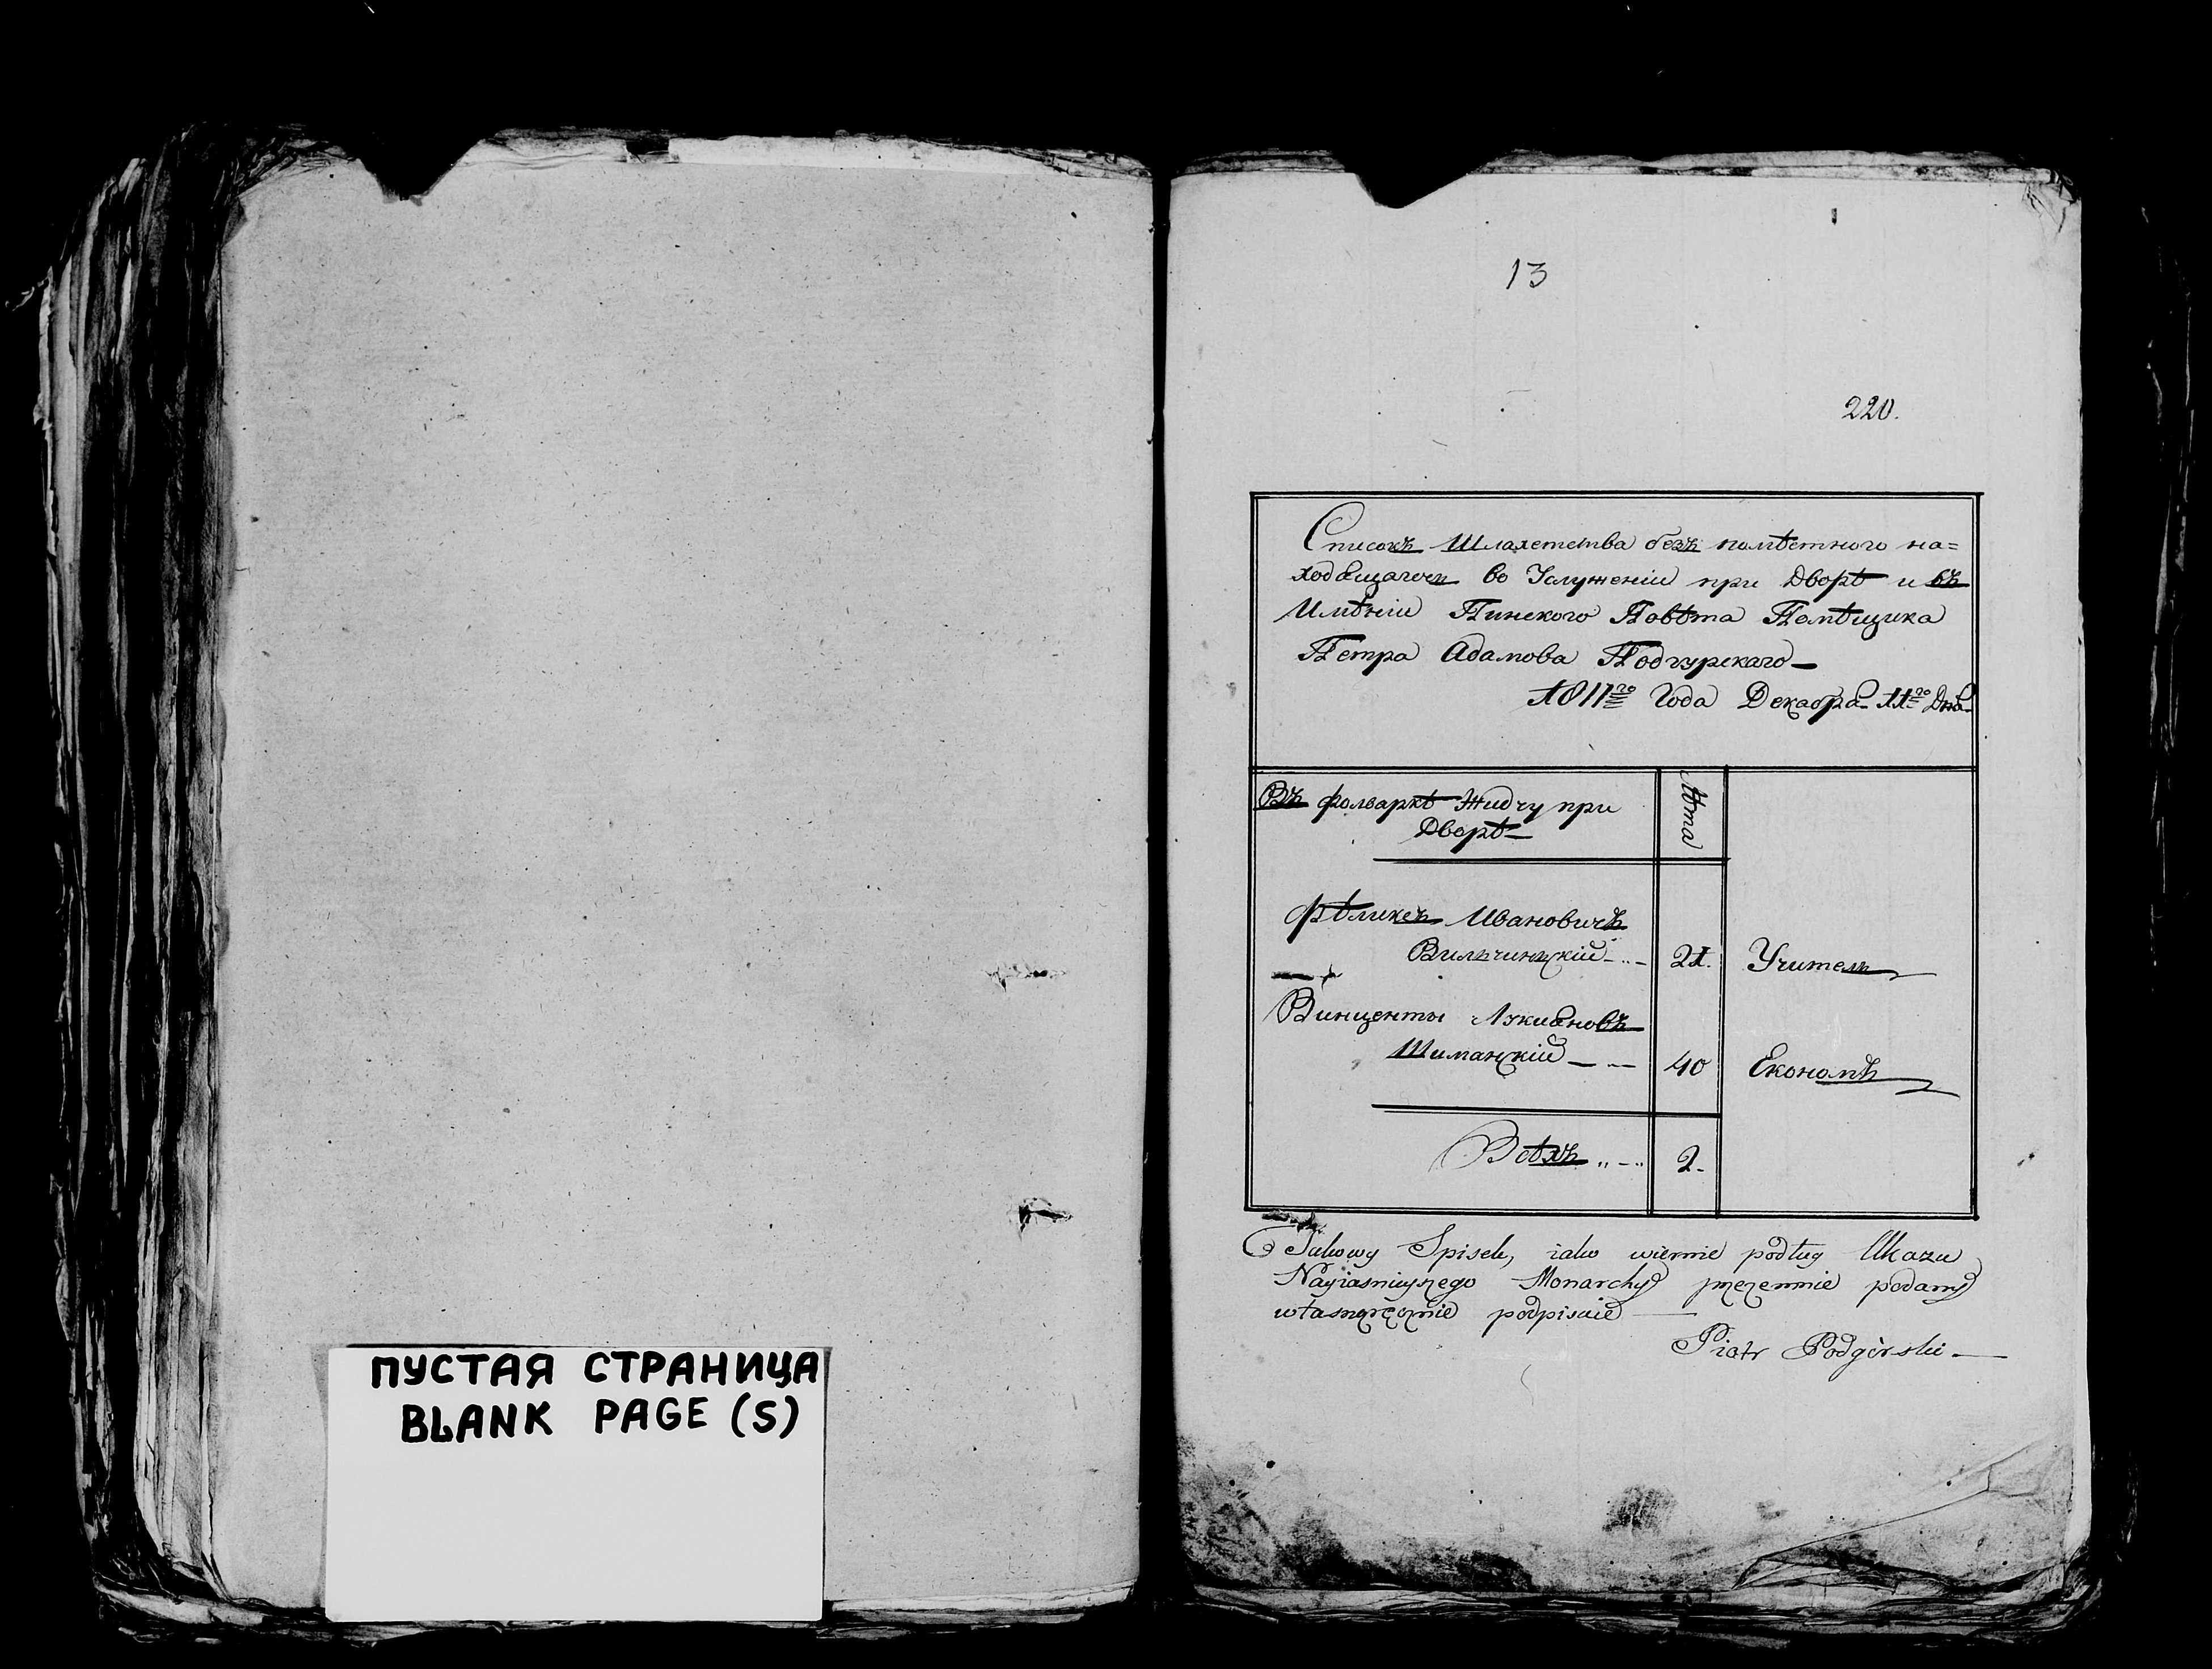 ПУСТАЯ СТРАНИЦА
BLANK PAGE (S)
13
220.
Списокъ Шляхетства безъ помѣтного на=
ходящагоси во Услуженіи при Дворѣ и въ
Имѣніи Пинского Повѣта Помѣщика
Петра Адамова Подгурскаго
1811го Года Декабра 11го Дна
Въ фолваркѣ Жидчу при
Дворѣ
Лѣта
Фѣликсъ Ивановичъ
Вильчинский 21. Учитель
Винценты Лукиановъ
Шиманский 40 Економъ
Всѣхъ 2.
Takowy Spisek, iako wiernie podług Ukazu
Nayiasnieyszego Monarchy przezemnie podany
własnoręcznie podpisuie
Piotr Podgórski